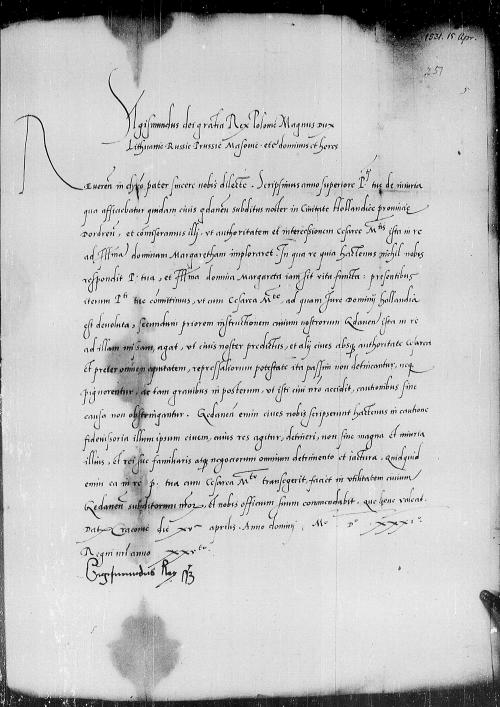 1531. 15 Apr.
251
5
Sigismundus dei gratia Rex Polonie Magnus Dux
Lithuanie Russie Prussie Masouie etc dominus et heres
Reueren in chro pater sincere nobis dilecte. Scripsimus anno superiore Ptj tue de iniuria
qua afficiebatur quidam ciuis gdanen subditus noster in Ciuitate Hollandice prouincie
Dordren, et comiseramus illj, vt authoritatem et intercessionem Cesaree Mtis ista in re
ad Illma dominam Margaretham imploraret. In qua re quia hactenus nichil nobis
respondit P. tua, et Illma domina Margareta iam sit vita functa: presentibus
iterum Pti tue comittimus, vt cum Cesarea Mte, ad quam Jure Dominij hollandia
est deuoluta, secundum priorem instructionem ciuium nostrorum Gdanen ista in re
ad illam missam, agat, vt ciuis noster predictus, et alij ciues absq authoritate cesarea
et preter omnem reputatem, repressaliorum potestate ita passim non detineantur, neq
pignorentur, ac tam grauibus in posterum, vt isti ciui nro accidit, cautionibus sine
causa non obstringantur. Gedanen enim ciues nobis scripserunt hactenus in cautione
fideiussoria illum ipsum ciuem, cuius res agitur, detineri, non sine magna et iniuria
illius, et rei sue familiaris atq negociorum omnium detrimento et iactura. Quidquid
enim ea in re p. tua cum Cesarea Mte transegerit, faciet in vtilitatem ciuium
Gedanen subditorum nrorum, et nobis officium suum commendabit. que bene valeat.
Dat Cracouie die xv aprilis. Anno domini Mo Do xxxio
Regni nri anno xxvto
Sigismundus Rex sst